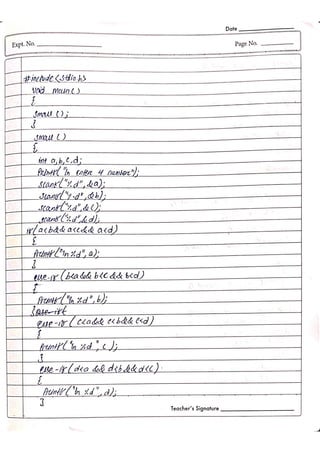 Date
Expt. No.
Page No.
#include<stdio.h>
void main()
{
small ();
}
small ()
{
int a,b,c,d;
Printf("\n enter 4 numbers");
scanf("%d",&a);
scanf("%d",&b);
scanf("%d",&c);
scanf("%d",&d);
if(a<b&& a<c&& a<d)
{
Printf("\n%d",a);
}
else-if (b<a&& b<c&& b<d)
{
Printf("\n %d",b);
}
else-if (c<a&& c<b&& c<d)
{
Printf("\n %d",c);
}
else-if(d<a && d<b&& d<c)
{
Printf("\n %d",d);
}
Teacher's Signature